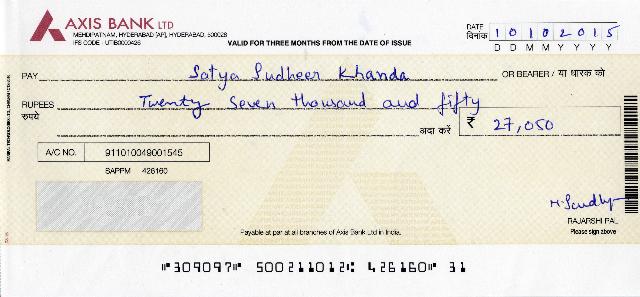 AXIS BANK LTD
MEHDIPATNAM, HYDERABAD [AP], HYDERABAD, 500028
IFS CODE - UTIB0000426
VALID FOR THREE MONTHS FROM THE DATE OF ISSUE
DATE
दिनांक
10102015
D D M M Y Y Y Y
PAY Satya Sudheer Khanda OR BEARER / या धारक को
RUPEES Twenty Seven thousand and fifty
रुपये
अदा करें ₹ 27,050
A/C NO. 911010049001545
SAPPM 426160
RAJARSHI PAL
Please sign above
Payable at par at all branches of Axis Bank Ltd in India.
⑈309097⑈ 500211012⑆ 426160⑈ 31